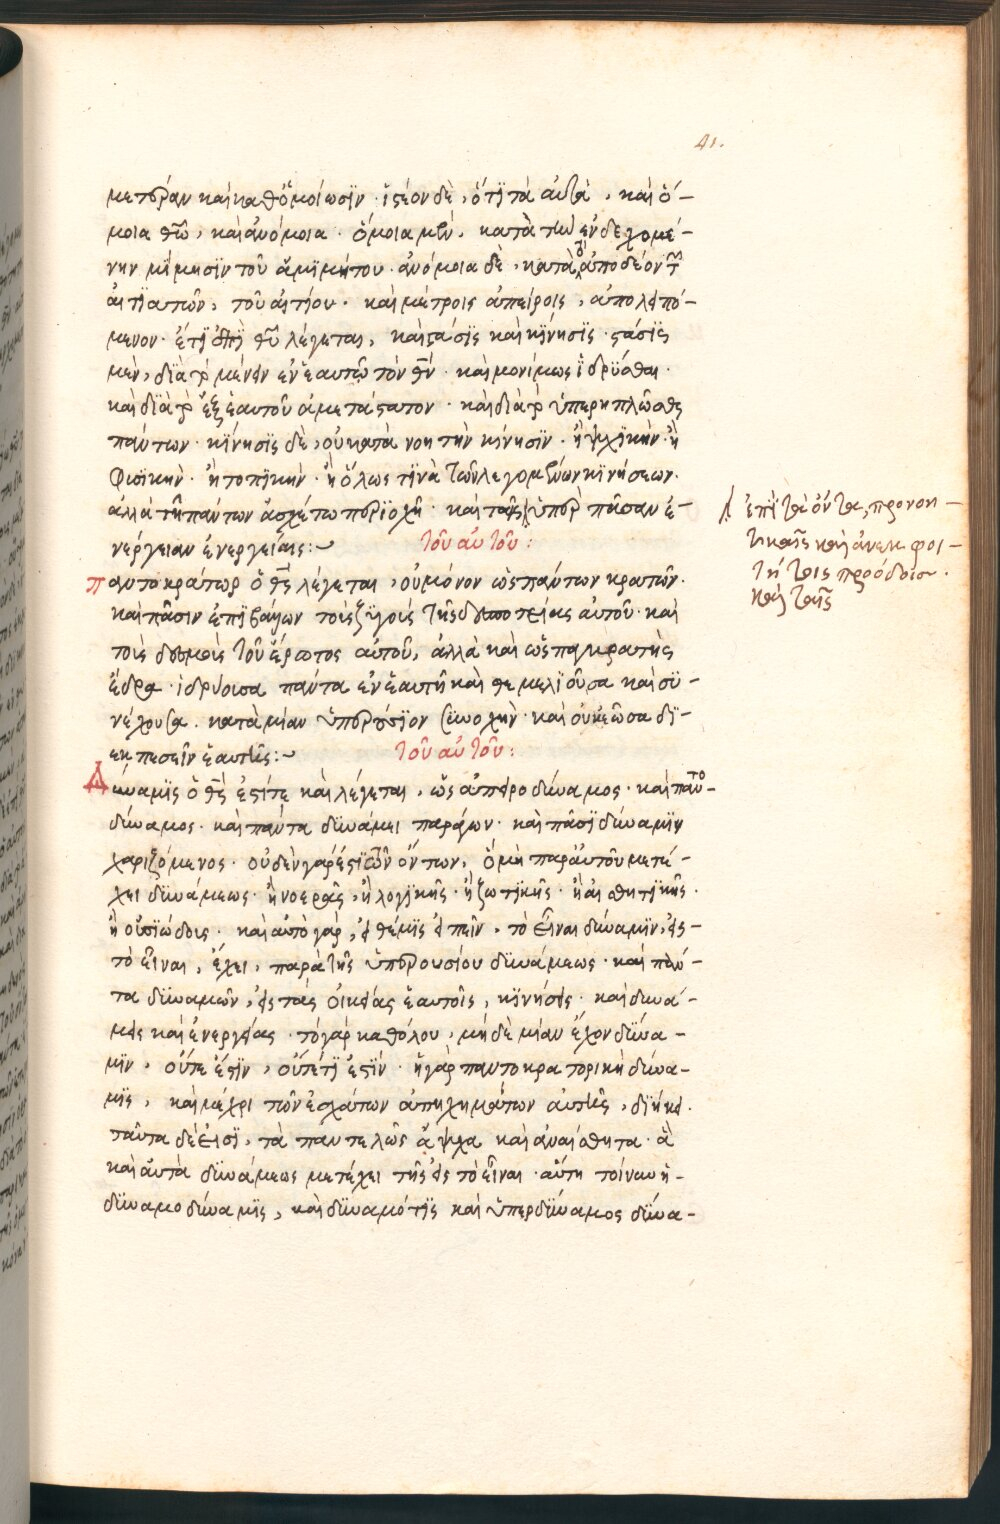 41.
μετραν και καθομοίωσϊν · ἰστέον δὲ, ὅτϊ τὰ αὐτὰ, καὶ ὅ-
μοια θῶ, καὶ ἀνόμοια · ὅμοια μὲν, κατὰ τὴν ἐνδεχομέ-
νην μίμησϊν τοῦ ἀμϊμήτου · ἀνόμοια δὲ, κατὰ τὸ ἀποδέον τῶν
αἰτϊατῶν, τοῦ αἰτίου · καὶ μέτροις ἀπείροις, ἀπολειπό-
μενον · ἔτϊ ἐπὶ θῦ λέγεται, καὶ στάσϊς καὶ κίνησϊς · στάσϊς
μὲν, δϊὰ τὸ μένειν ἐν ἑαυτῶ τὸν θν · καὶ μονίμως ἱδρύσθαι ·
καὶ δϊὰ τὸ ἐξ ἑαυτοῦ ἀμετάστατον · καὶ διὰ τὸ ὑπερηπλῶσθαι
πάντων · κίνησϊς δὲ, οὐ κατὰ νοητὴν κίνησϊν · ἢ ψυχϊκὴν · ἢ
φυσϊκὴν · ἢ τοπϊκὴν · ἢ ὅλως τϊνὰ τῶν λεγομένων κϊνήσεων ·
ἀλλὰ τῆ πάντων ἀσχέτω περϊοχῆ · καὶ ταῖς ὑπὲρ πᾶσαν ἐ-
νέργειαν ἐνεργείαις :~ τοῦ αὐτοῦ :
παντοκράτωρ ὁ θς λέγεται, οὐ μόνον ὡς πάντων κρατῶν ·
καὶ πᾶσιν ἐπϊβάλλων τοῖς ζϋγοῖς τῆς δεσποτείας αὐτοῦ · καὶ
τοῖς δεσμοῖς τοῦ ἔρωτος αὐτοῦ, ἀλλὰ καὶ ὡς παγκρατὴς
ἕδρα · ἱδρύουσα πάντα ἐν ἑαυτῆ καὶ θεμελϊοῦσα καὶ συ-
νέχουσα · κατὰ μίαν ὑπερούσϊον συνοχὴν · καὶ οὐκ ἐῶσα δϊ-
εκπεσεῖν ἑαυτῆς :~ τοῦ αὐτοῦ :
Δύναμϊς ὁ θς ἐστί τε καὶ λέγεται, ὡς ἀπειροδύναμος · καὶ παντο-
δύναμος · καὶ πάντα δυνάμει παράγων · καὶ πᾶσϊ δύναμϊν
χαριζόμενος · οὐδὲν γάρ ἐστϊ τῶν ὄντων, ὃ μὴ παρ αὐτοῦ μετέ-
χει δυνάμεως · ἢ νοερᾶς, ἢ λογϊκῆς · ἢ ζωτϊκῆς · ἢ αἰσθητϊκῆς ·
ἢ οὐσϊώδους · καὶ αὐτὸ γὰρ, εἰ θέμϊς εἰπεῖν, τὸ εἶναι δύναμϊν, εἰς
τὸ εἶναι, ἔχει, παρὰ τῆς ὑπερουσίου δυνάμεως · καὶ πάν-
τα δυναμῶν, εἰς τὰς οἰκείας ἑαυτοῖς, κϊνήσεις · καὶ δυνά-
μεις καὶ ἐνεργείας · τὸ γὰρ καθόλου, μηδὲ μίαν ἔχον δύνα-
μϊν, οὔτε ἐστϊν, οὔτε τϊ ἐστϊν · ἡ γὰρ παντοκρατορικὴ δύνα-
μϊς, καὶ μέχρι τῶν ἐσχάτων ἀπηχημάτων αὐτῆς, διήκει ·
ταῦτα δέ εἰσϊ, τὰ παντελῶς ἄψυχα καὶ ἀναίσθητα · ἃ
καὶ αὐτὰ δυνάμεως μετέχει τῆς εἰς τὸ εἶναι · αὕτη τοίνυν ἡ-
δυναμοδύναμϊς, καὶ δυναμότης καὶ ὑπερδύναμος δύνα-
ἐπὶ τὰ ὄντα, προνοη-
τικαῖς καὶ ἀνεκφοι-
τήτοις προόδοις ·
καὶ ταῖς